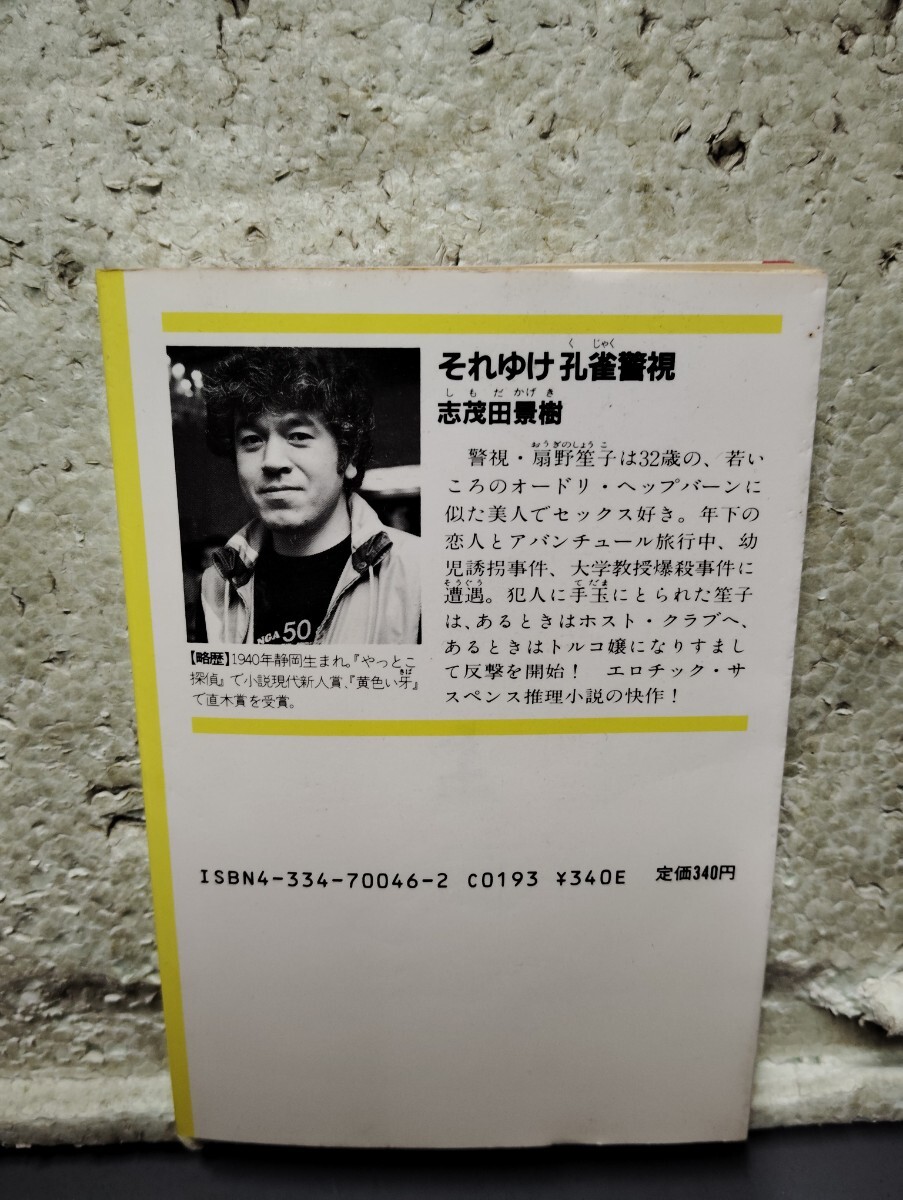 それゆけ孔雀警視
くじゃく
志茂田景樹
しもだかげき
警視・扇野笙子は32歳の、若い
おうぎのしょうこ
ころのオードリ・ヘップバーンに
似た美人でセックス好き。年下の
恋人とアバンチュール旅行中、幼
児誘拐事件、大学教授爆殺事件に
遭遇。犯人に手玉にとられた笙子
そうぐう
てだま
は、あるときはホスト・クラブへ、
あるときはトルコ嬢になりすまし
て反撃を開始！ エロチック・サ
スペンス推理小説の快作！
NGA 50
【略歴】1940年静岡生まれ。『やっとこ
探偵』で小説現代新人賞、『黄色い牙』
きば
で直木賞を受賞。
ISBN4-334-70046-2 C0193 ¥340E 定価340円